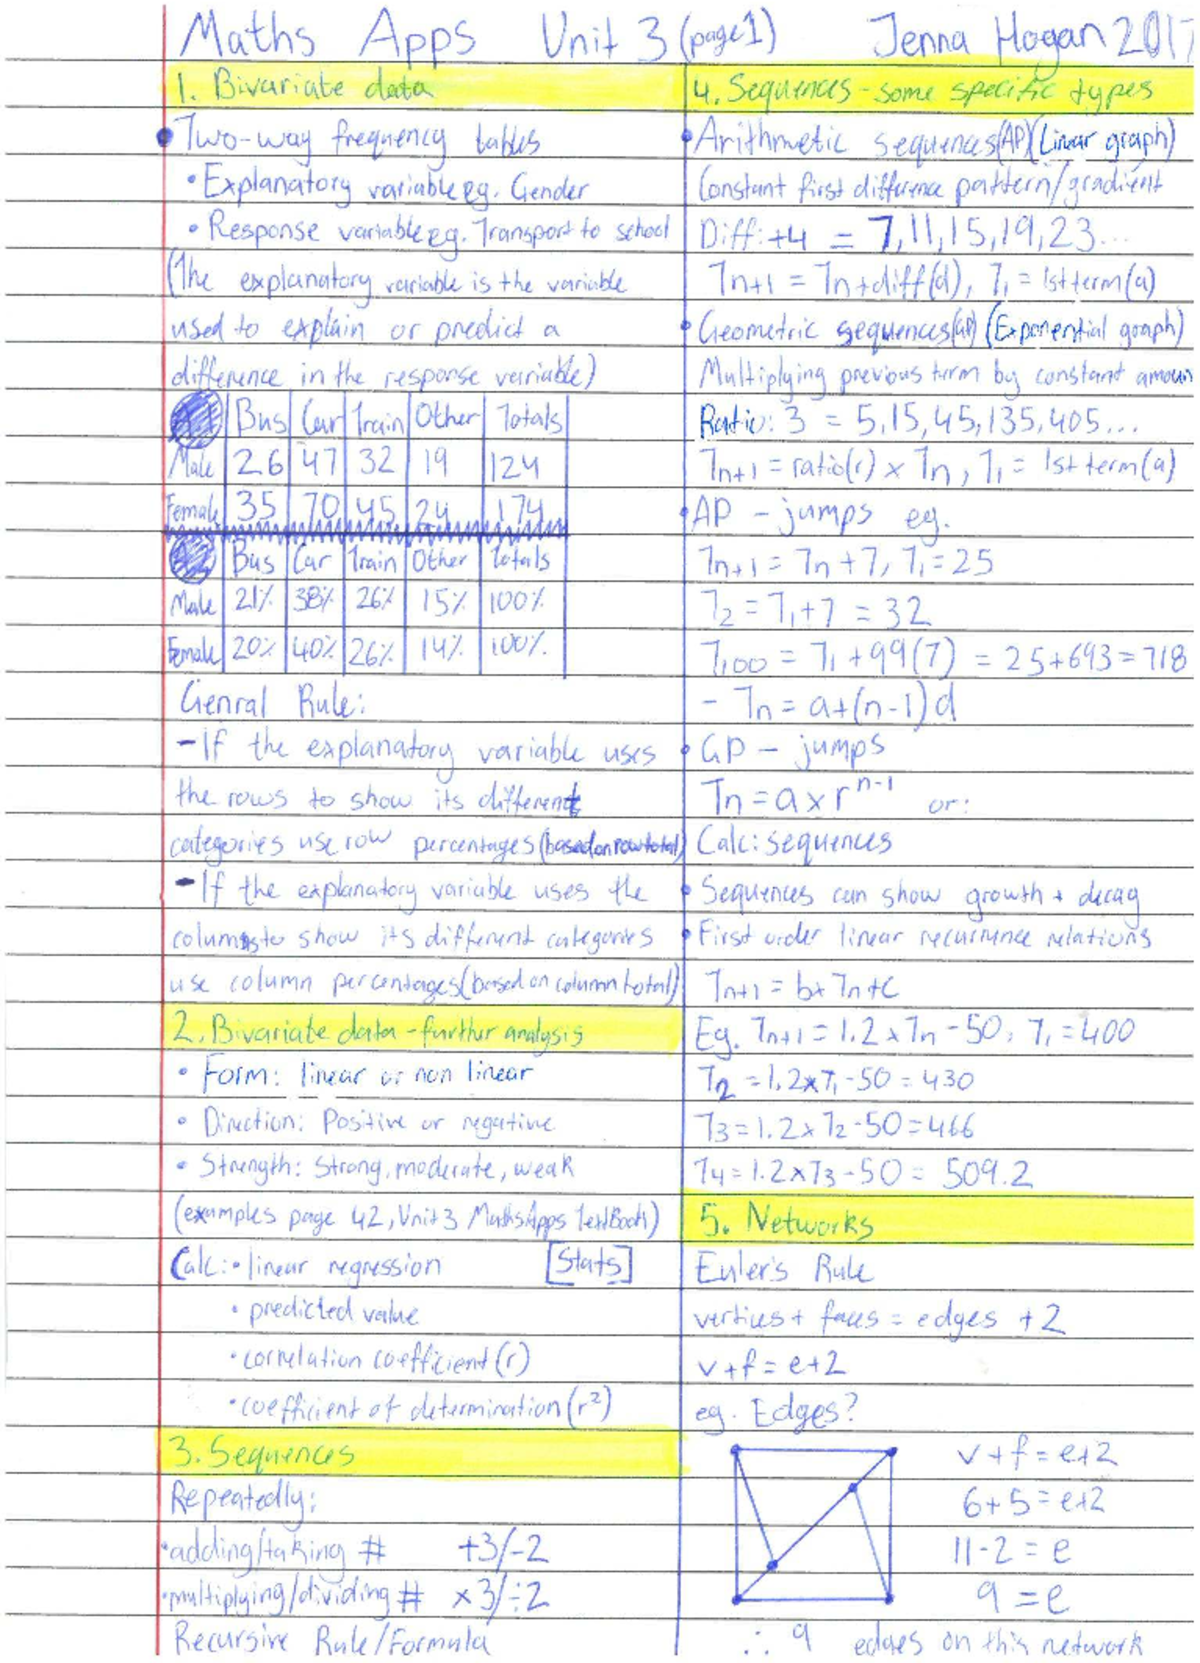 Maths Apps Unit 3 (page 1) Jenna Hogan 2017
1. Bivariate data
• Two-way frequency tables
• Explanatory variable eg. Gender
• Response variable eg. Transport to school
(The explanatory variable is the variable
used to explain or predict a
difference in the response variable)
Bus Car Train Other Totals
Male 26 47 32 19 124
Female 35 70 45 24 174
Bus Car Train Other Totals
Male 21% 38% 26% 15% 100%
Female 20% 40% 26% 14% 100%
Genral Rule:
- If the explanatory variable uses
the rows to show its different
categories use row percentages (based on row total)
- If the explanatory variable uses the
columns to show its different categories
use column percentages (based on column total)
2. Bivariate data - further analysis
• Form: linear or non linear
• Direction: Positive or negative
• Strength: Strong, moderate, weak
(examples page 42, Unit 3 Maths Apps Text Book)
Calc: • linear regression [Stats]
• predicted value
• correlation coefficient (r)
• coefficient of determination (r²)
3. Sequences
Repeatedly:
• adding/taking # +3/-2
• multiplying/dividing # ×3/÷2
Recursive Rule/Formula
4. Sequences - some specific types
• Arithmetic sequences (AP) (Linear graph)
Constant first difference pattern/gradient
Diff: +4 = 7, 11, 15, 19, 23...
Tn+1 = Tn + diff(d), T1 = 1st term (a)
• Geometric sequences (GP) (Exponential graph)
Multiplying previous term by constant amoun
Ratio: 3 = 5, 15, 45, 135, 405...
Tn+1 = ratio(r) × Tn, T1 = 1st term (a)
• AP - jumps eg.
Tn+1 = Tn + 7, T1 = 25
T2 = T1 + 7 = 32
T100 = T1 + 99(7) = 25 + 693 = 718
- Tn = a + (n-1) d
• GP - jumps
Tn = a × r^n-1 or:
Calc: sequences
• Sequences can show growth + decay
• First order linear recurrence relations
Tn+1 = b × Tn + c
Eg. Tn+1 = 1.2 × Tn - 50, T1 = 400
T2 = 1.2 × T1 - 50 = 430
T3 = 1.2 × T2 - 50 = 466
T4 = 1.2 × T3 - 50 = 509.2
5. Networks
Euler's Rule
vertices + faces = edges + 2
v + f = e + 2
eg. Edges?
v + f = e + 2
6 + 5 = e + 2
11 - 2 = e
9 = e
∴ 9 edges on this network